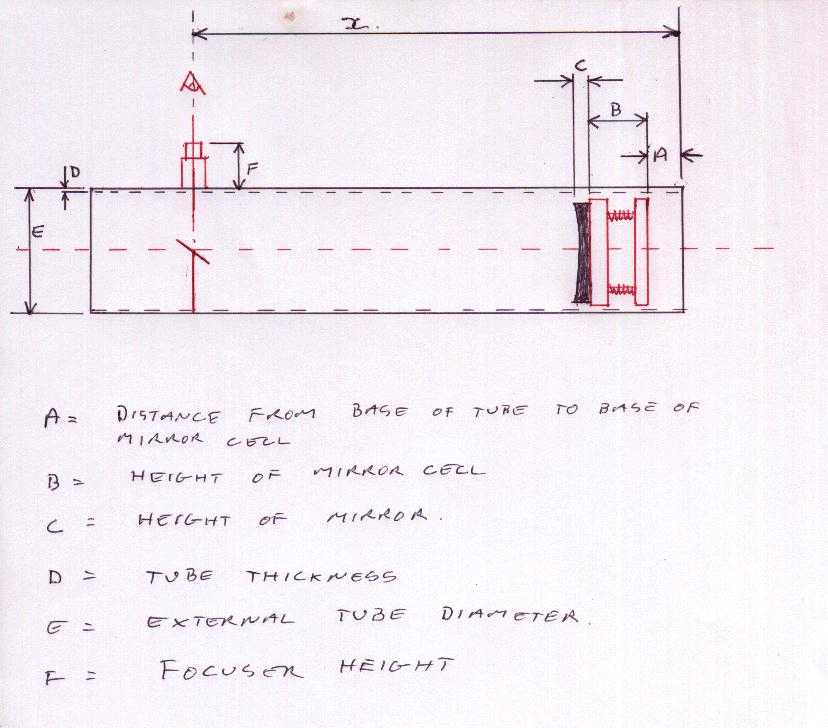 x.
C
B
A
D
F
E
A = DISTANCE FROM BASE OF TUBE TO BASE OF
MIRROR CELL
B = HEIGHT OF MIRROR CELL
C = HEIGHT OF MIRROR.
D = TUBE THICKNESS
E = EXTERNAL TUBE DIAMETER.
F = FOCUSER HEIGHT